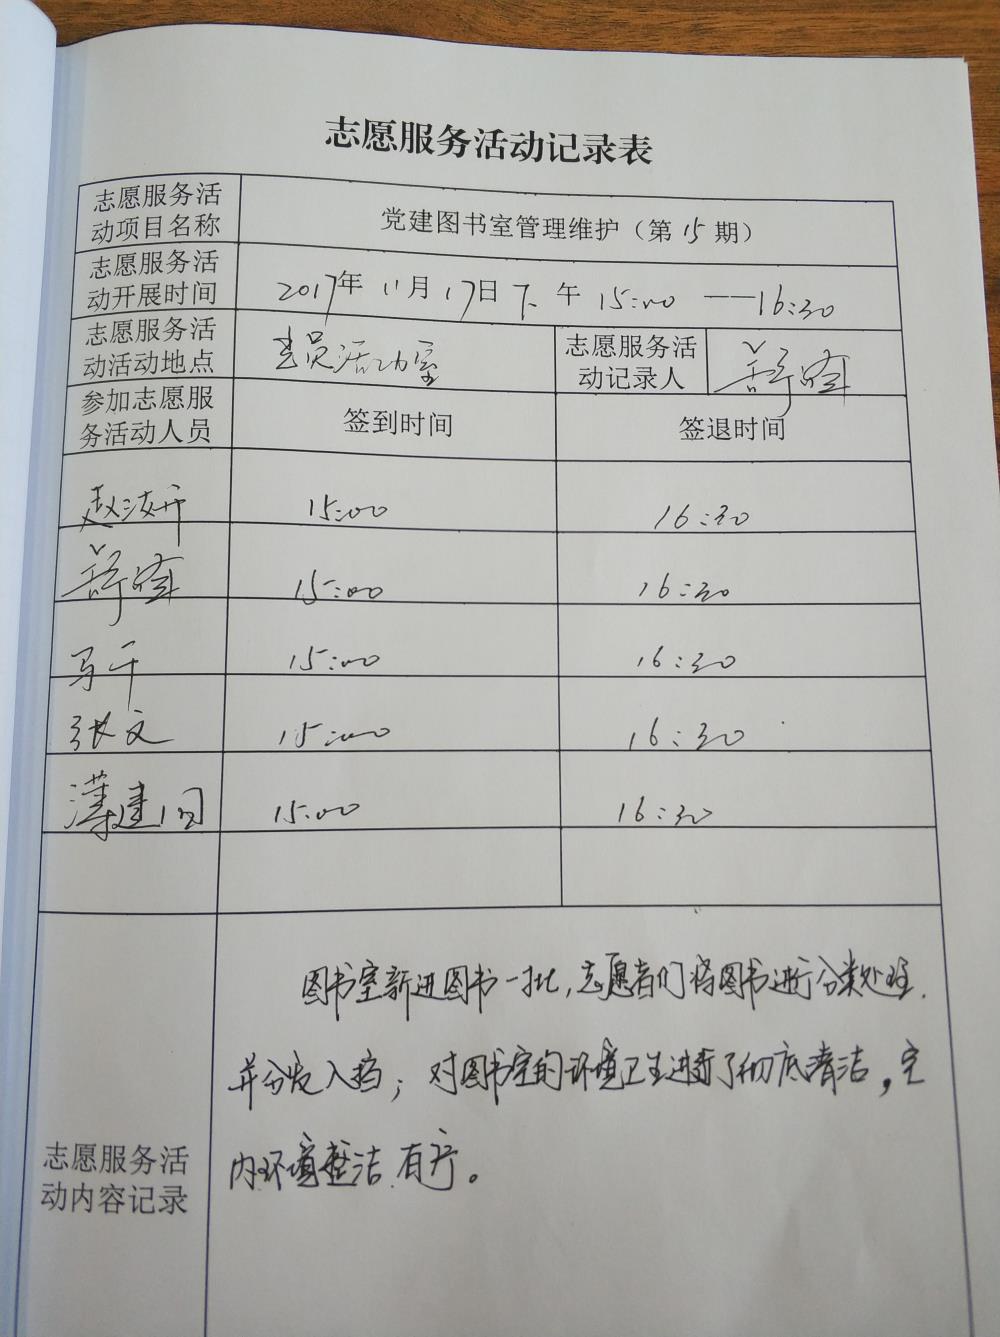 志愿服务活动记录表
志愿服务活
动项目名称
党建图书室管理维护（第15期）
志愿服务活
动开展时间
2017年11月17日下午15:00——16:30
志愿服务活
动活动地点
党员活动室
志愿服务活
动记录人
参加志愿服
务活动人员
签到时间
签退时间
15:00
16:30
15:00
16:30
马千
15:00
16:30
张文
15:00
16:30
15:00
16:30
志愿服务活
动内容记录
图书室新进图书一批,志愿者们将图书进行分类处理.
并分发入档；对图书室的环境卫生进行了彻底清洁,室
内环境整洁有序。